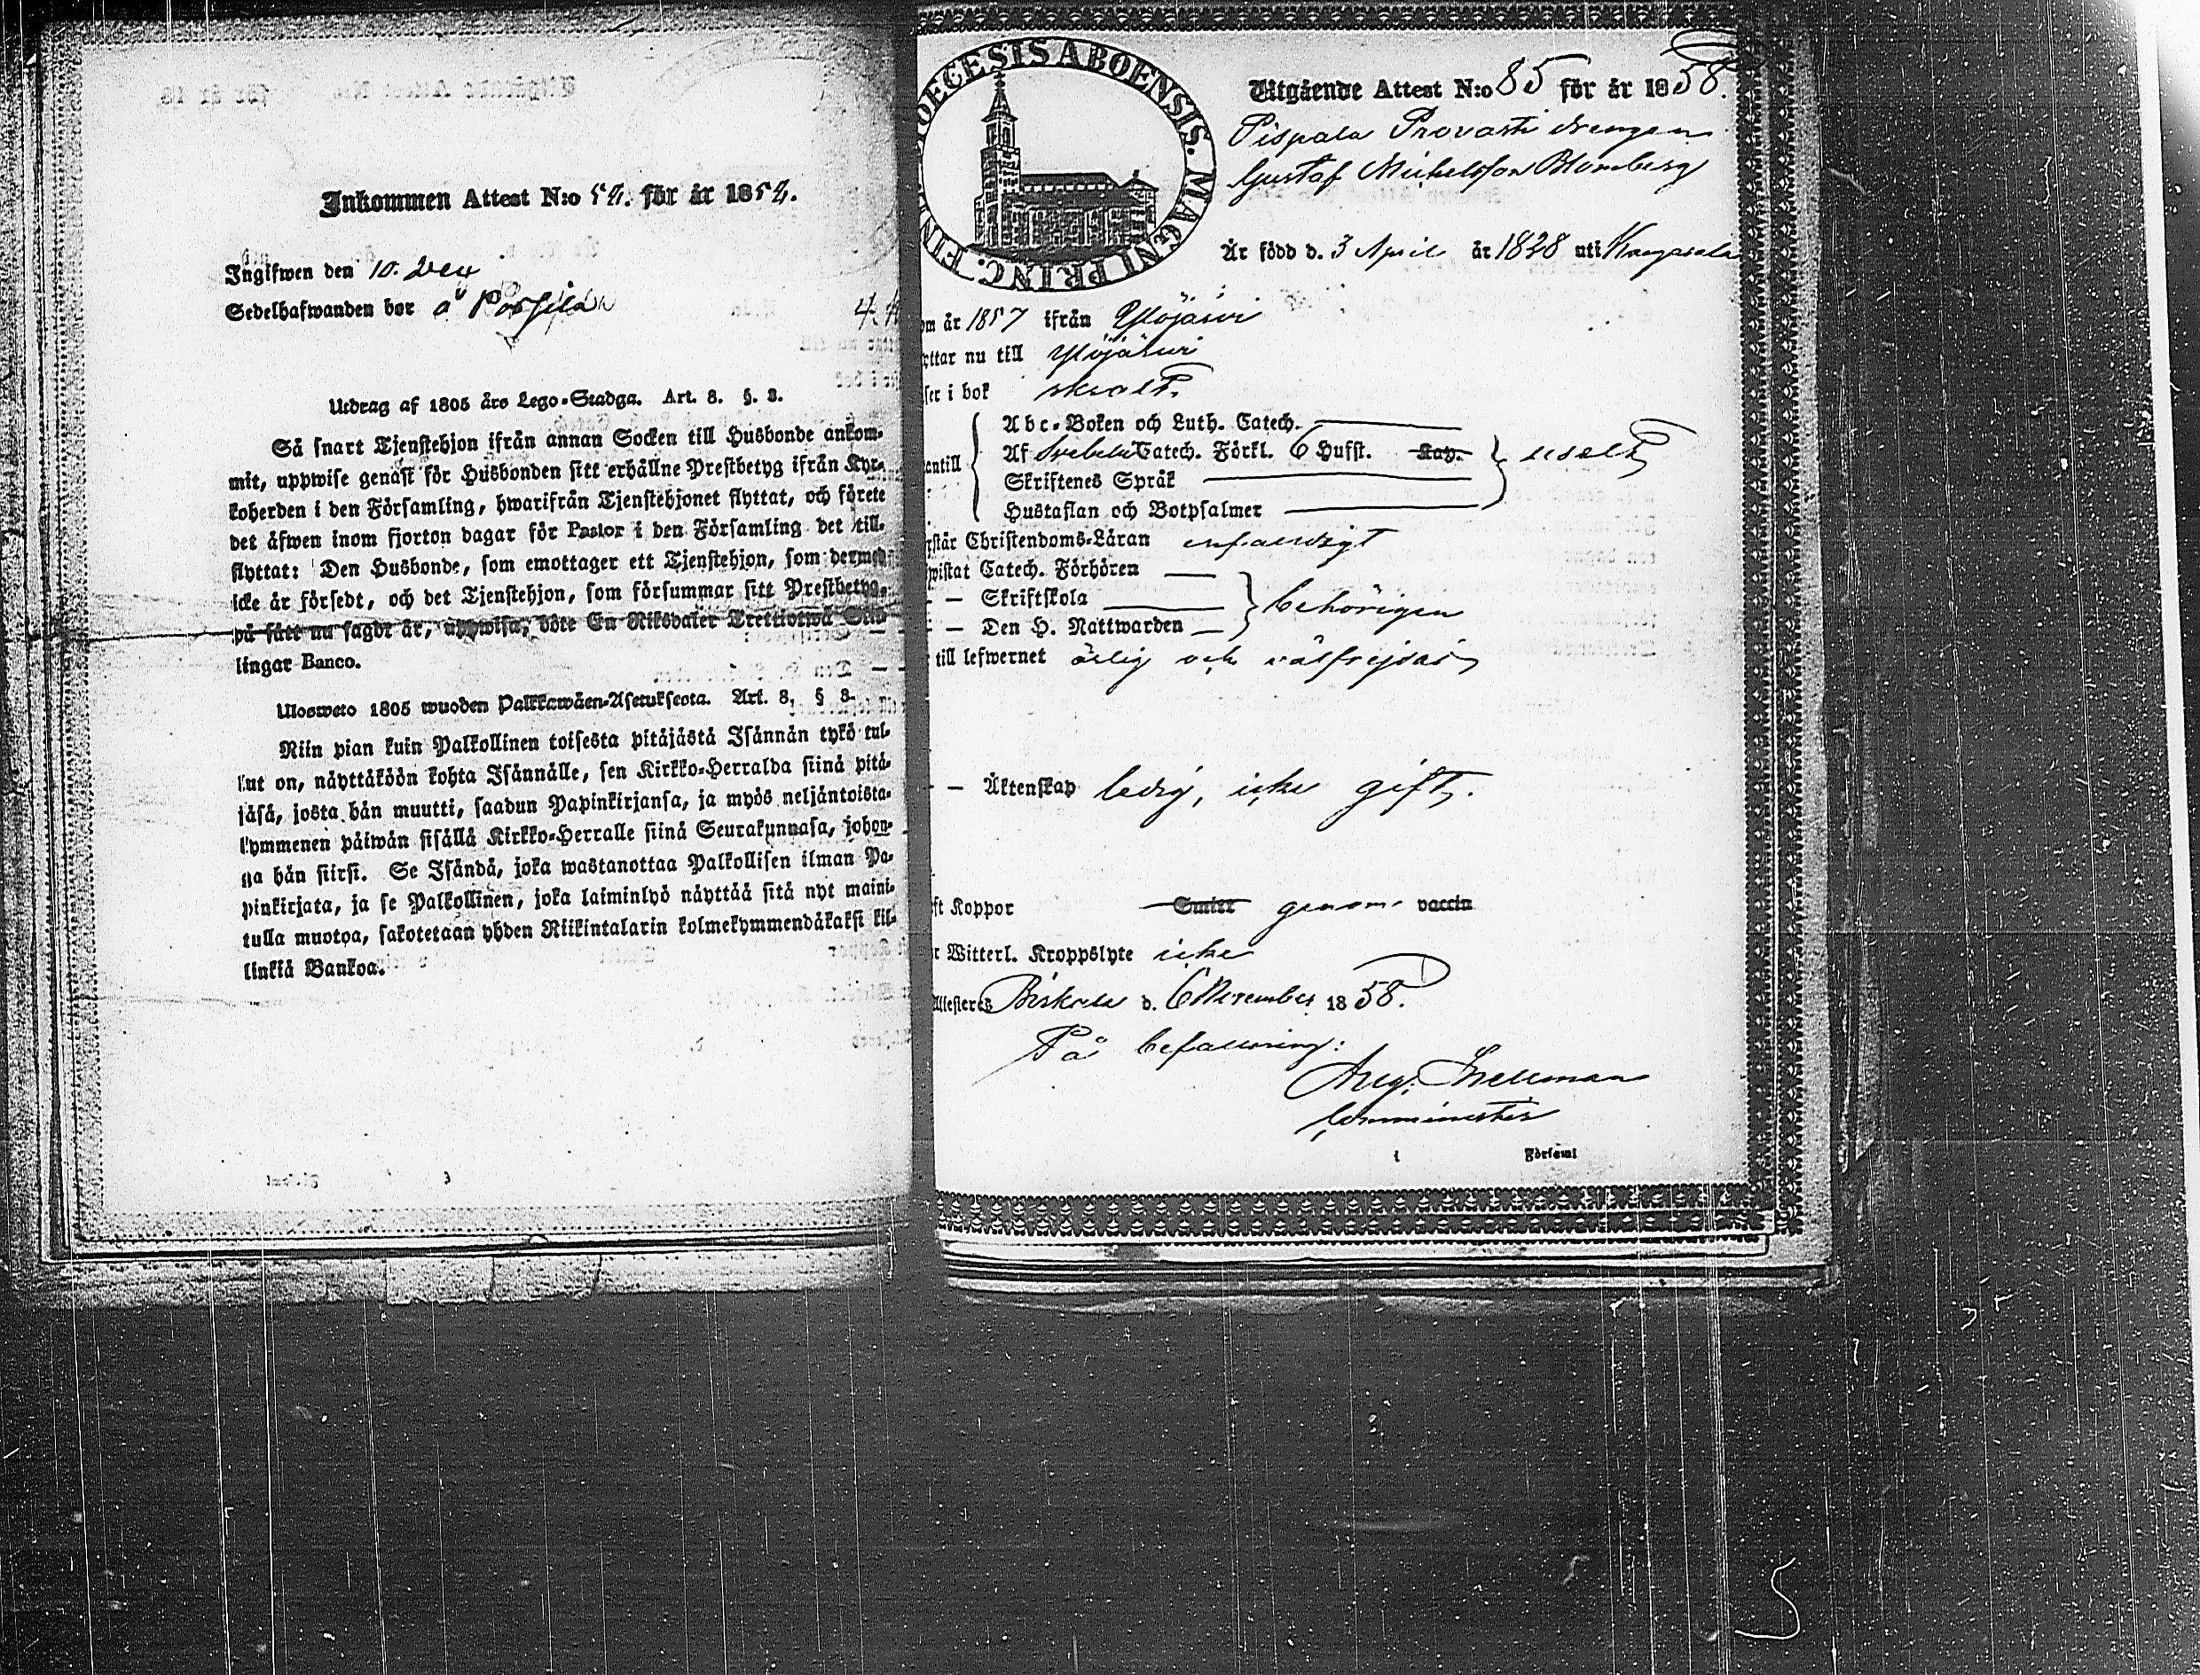 Inkommen Attest N:o 52. för år 1852.
Ingifwen den 10. Dec
Sedelhafwanden bor å
Utdrag af 1805 års Lego-Stadga. Art. 8. §. 8.
Så snart Tjenstehjon ifrån annan Socken till Husbonde ankom-
mit, uppwise genast för Husbonden sitt erhållne Prestbetyg ifrån Kyr-
koherden i den Församling, hwarifrån Tjenstehjonet flyttat, och förete
det äfwen inom fjorton dagar för Pastor i den Församling det till-
flyttat: Den Husbonde, som emottager ett Tjenstehjon, som dermed
icke är försedt, och det Tjenstehjon, som försummar sitt Prestbetyg,
på sätt nu sagdt är, uppwisa, böte En Riksdaler Trettiotwå Skil-
lingar Banco.
Ulosweto 1805 wuoden Palkkawäen-Asetuksesta. Art. 8, § 8.
Niin pian kuin Palkollinen toisesta pitäjästä Isännän tykö tul-
lut on, näyttäköön kohta Isännälle, sen Kirkko-Herralda siinä pitä-
jäsä, josta hän muutti, saadun Papinkirjansa, ja myös neljäntoista-
kymmenen päiwän sisällä Kirkko-Herralle siinä Seurakunnasa, johon-
ga hän siirsi. Se Isändä, joka wastanottaa Palkollisen ilman Pa-
pinkirjata, ja se Palkollinen, joka laiminlyö näyttää sitä nyt maini-
tulla muotoa, sakotetaan yhden Riikintalarin kolmekymmendäkaksi kil-
linkiä Bankoa.
DIOECESIS ABOENSIS. MAGNI PRINC. FINL
Utgående Attest N:o 85 för år 1858.
Pispala Provasti drengen
Gustaf Michelsson Blomberg
Är född d. 3 April år 1828 uti Kangasala
om år 1857 ifrån Ylöjärvi
yttar nu till Ylöjärwi
ser i bok swalt
Abc-Boken och Luth. Catech.
antill Af Svebelii Catech. Förkl. 6 Hufst. Kap.
Skriftenes Språk
Hustaflan och Botpsalmer
rstår Christendoms-Läran enfaldigt
wistat Catech. Förhören
— Skriftskola behörigen
— Den H. Nattwarden
till lefwernet ärlig och välfrejdad
— Äktenskap ledig, icke gift.
ft Koppor genom vaccin
r Witterl. Kroppslyte icke
Attesteres Birkala d. 6 November 1858.
På befallning:
Aug. Snellman
Comminister
i Församl